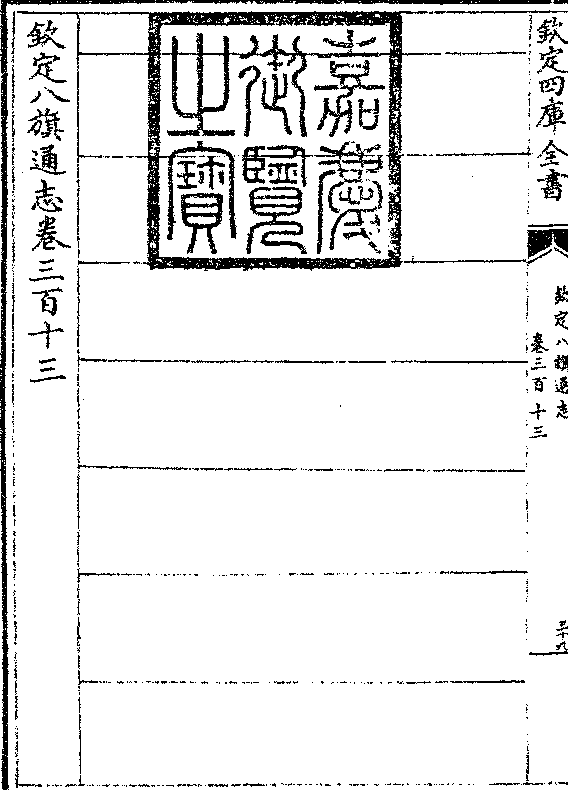 欽定四庫全書
欽定八旗通志
卷三百十三
三十九
嘉慶
御覽
之寶
欽定八旗通志卷三百十三